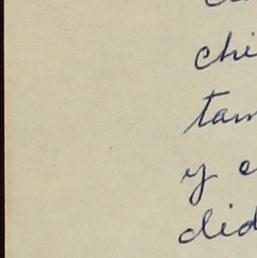 chi
tam
y c
did